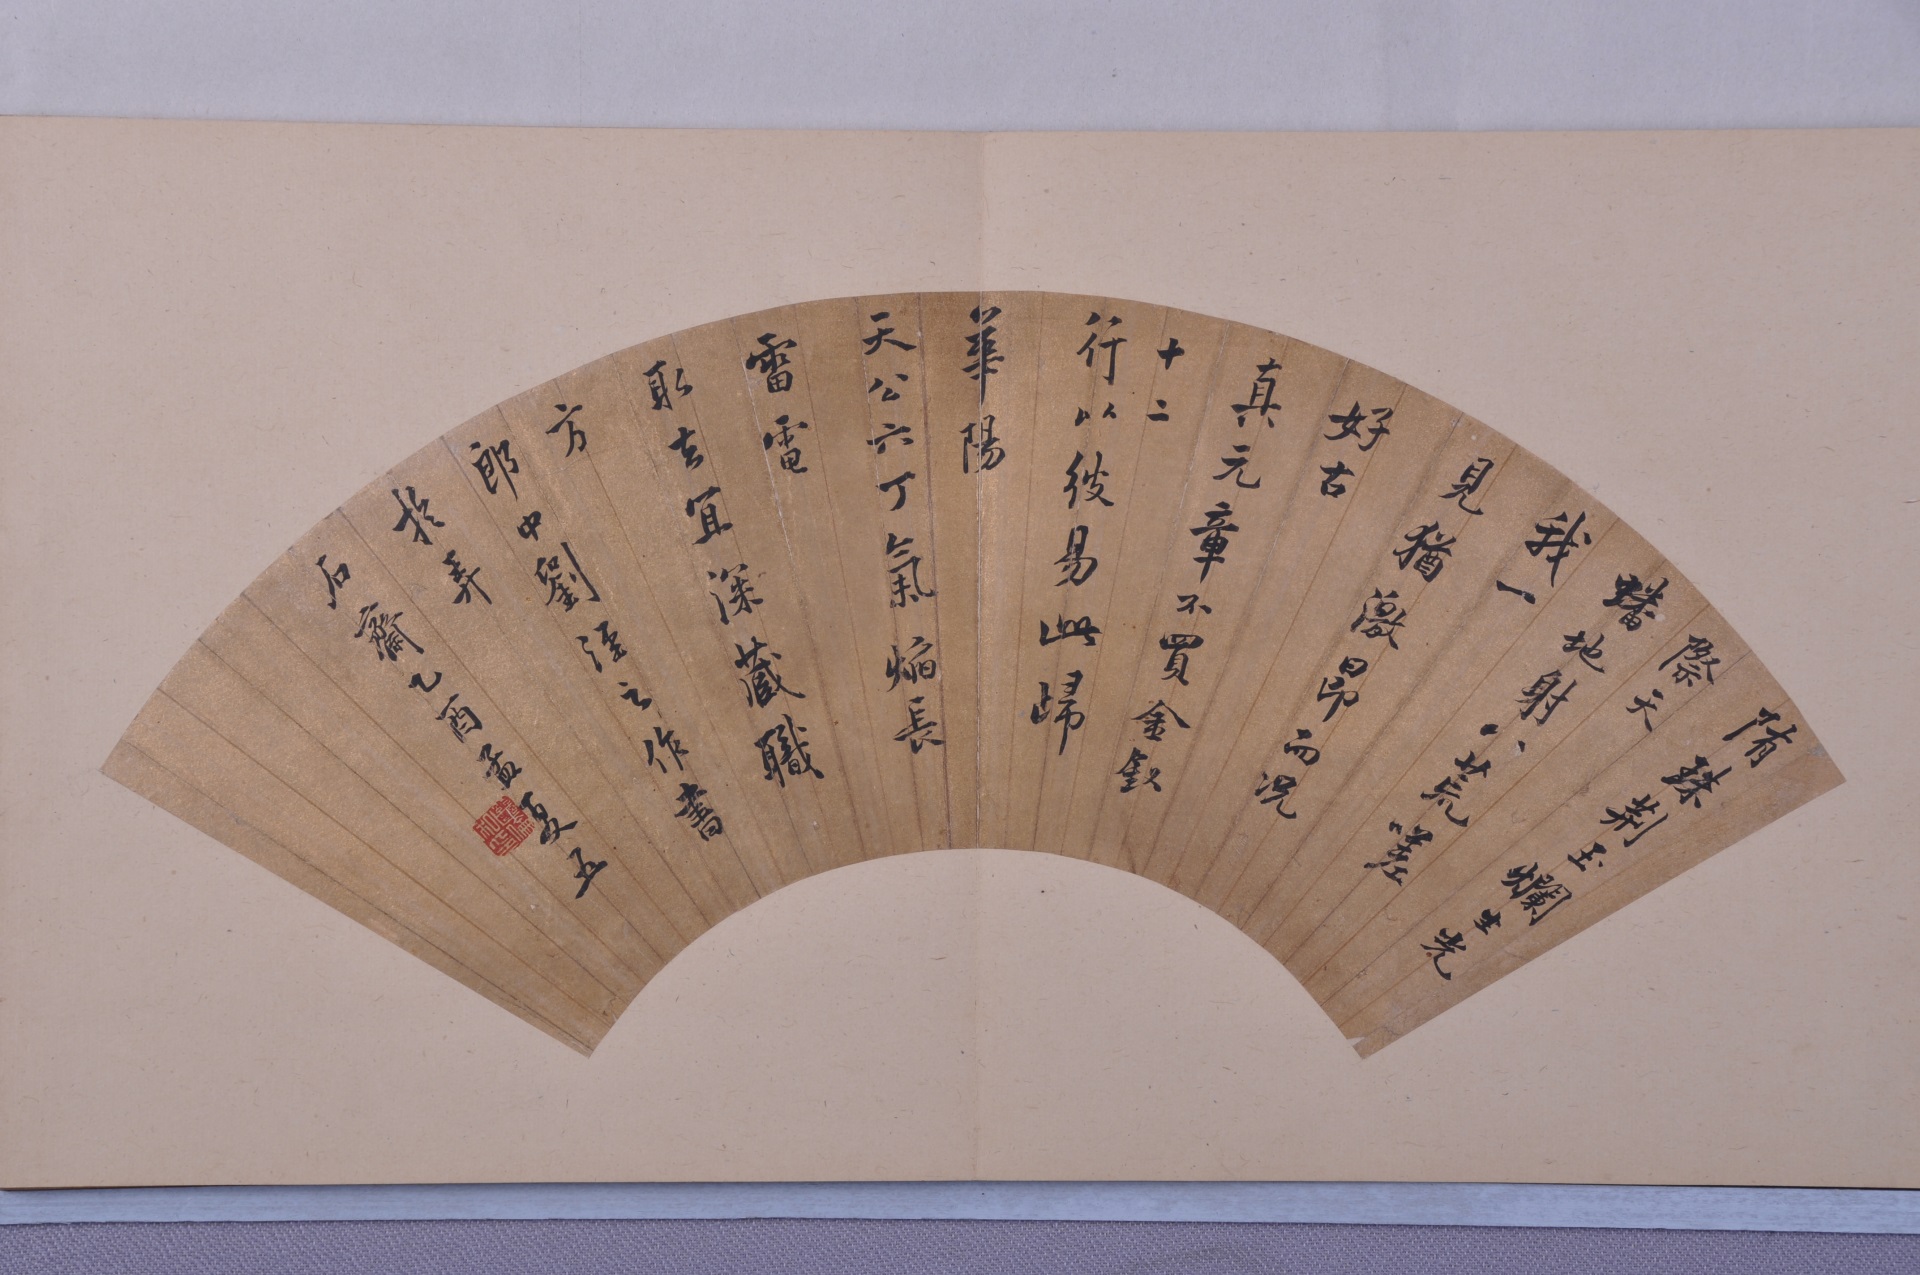 隋珠荆玉爛生光
際天
蟠地射八荒嗟
我一
見猶激昂而況
好古
真元章不買金釵
十二
行以彼易此歸
華陽
天公六丁氣焰長
雷電
取去冝深藏職
方
郎中劉涇之作書
於弄
石齋乙酉孟夏五